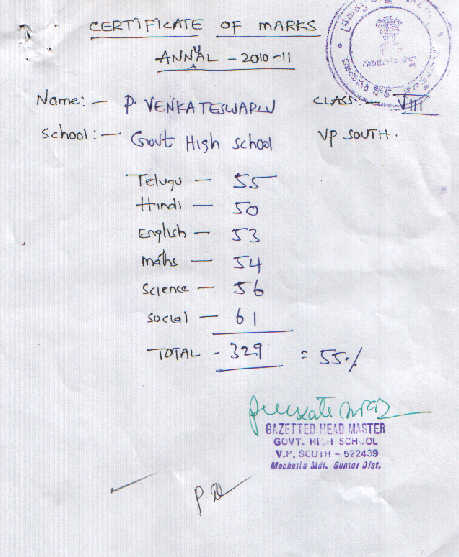 CERTIFICATE OF MARKS
ANNUAL - 2010-11
Name: - P VENKATESWARLU CLASS: - VIII
School: - Govt High school VP SOUTH.
Telugu - 55
Hindi - 50
English - 53
maths - 54
Science - 56
social - 61
TOTAL - 329 = 55%
GAZETTED HEAD MASTER
GOVT. HIGH SCHOOL
V.P. SOUTH - 522439
Macherla Mdl. Guntur Dist.